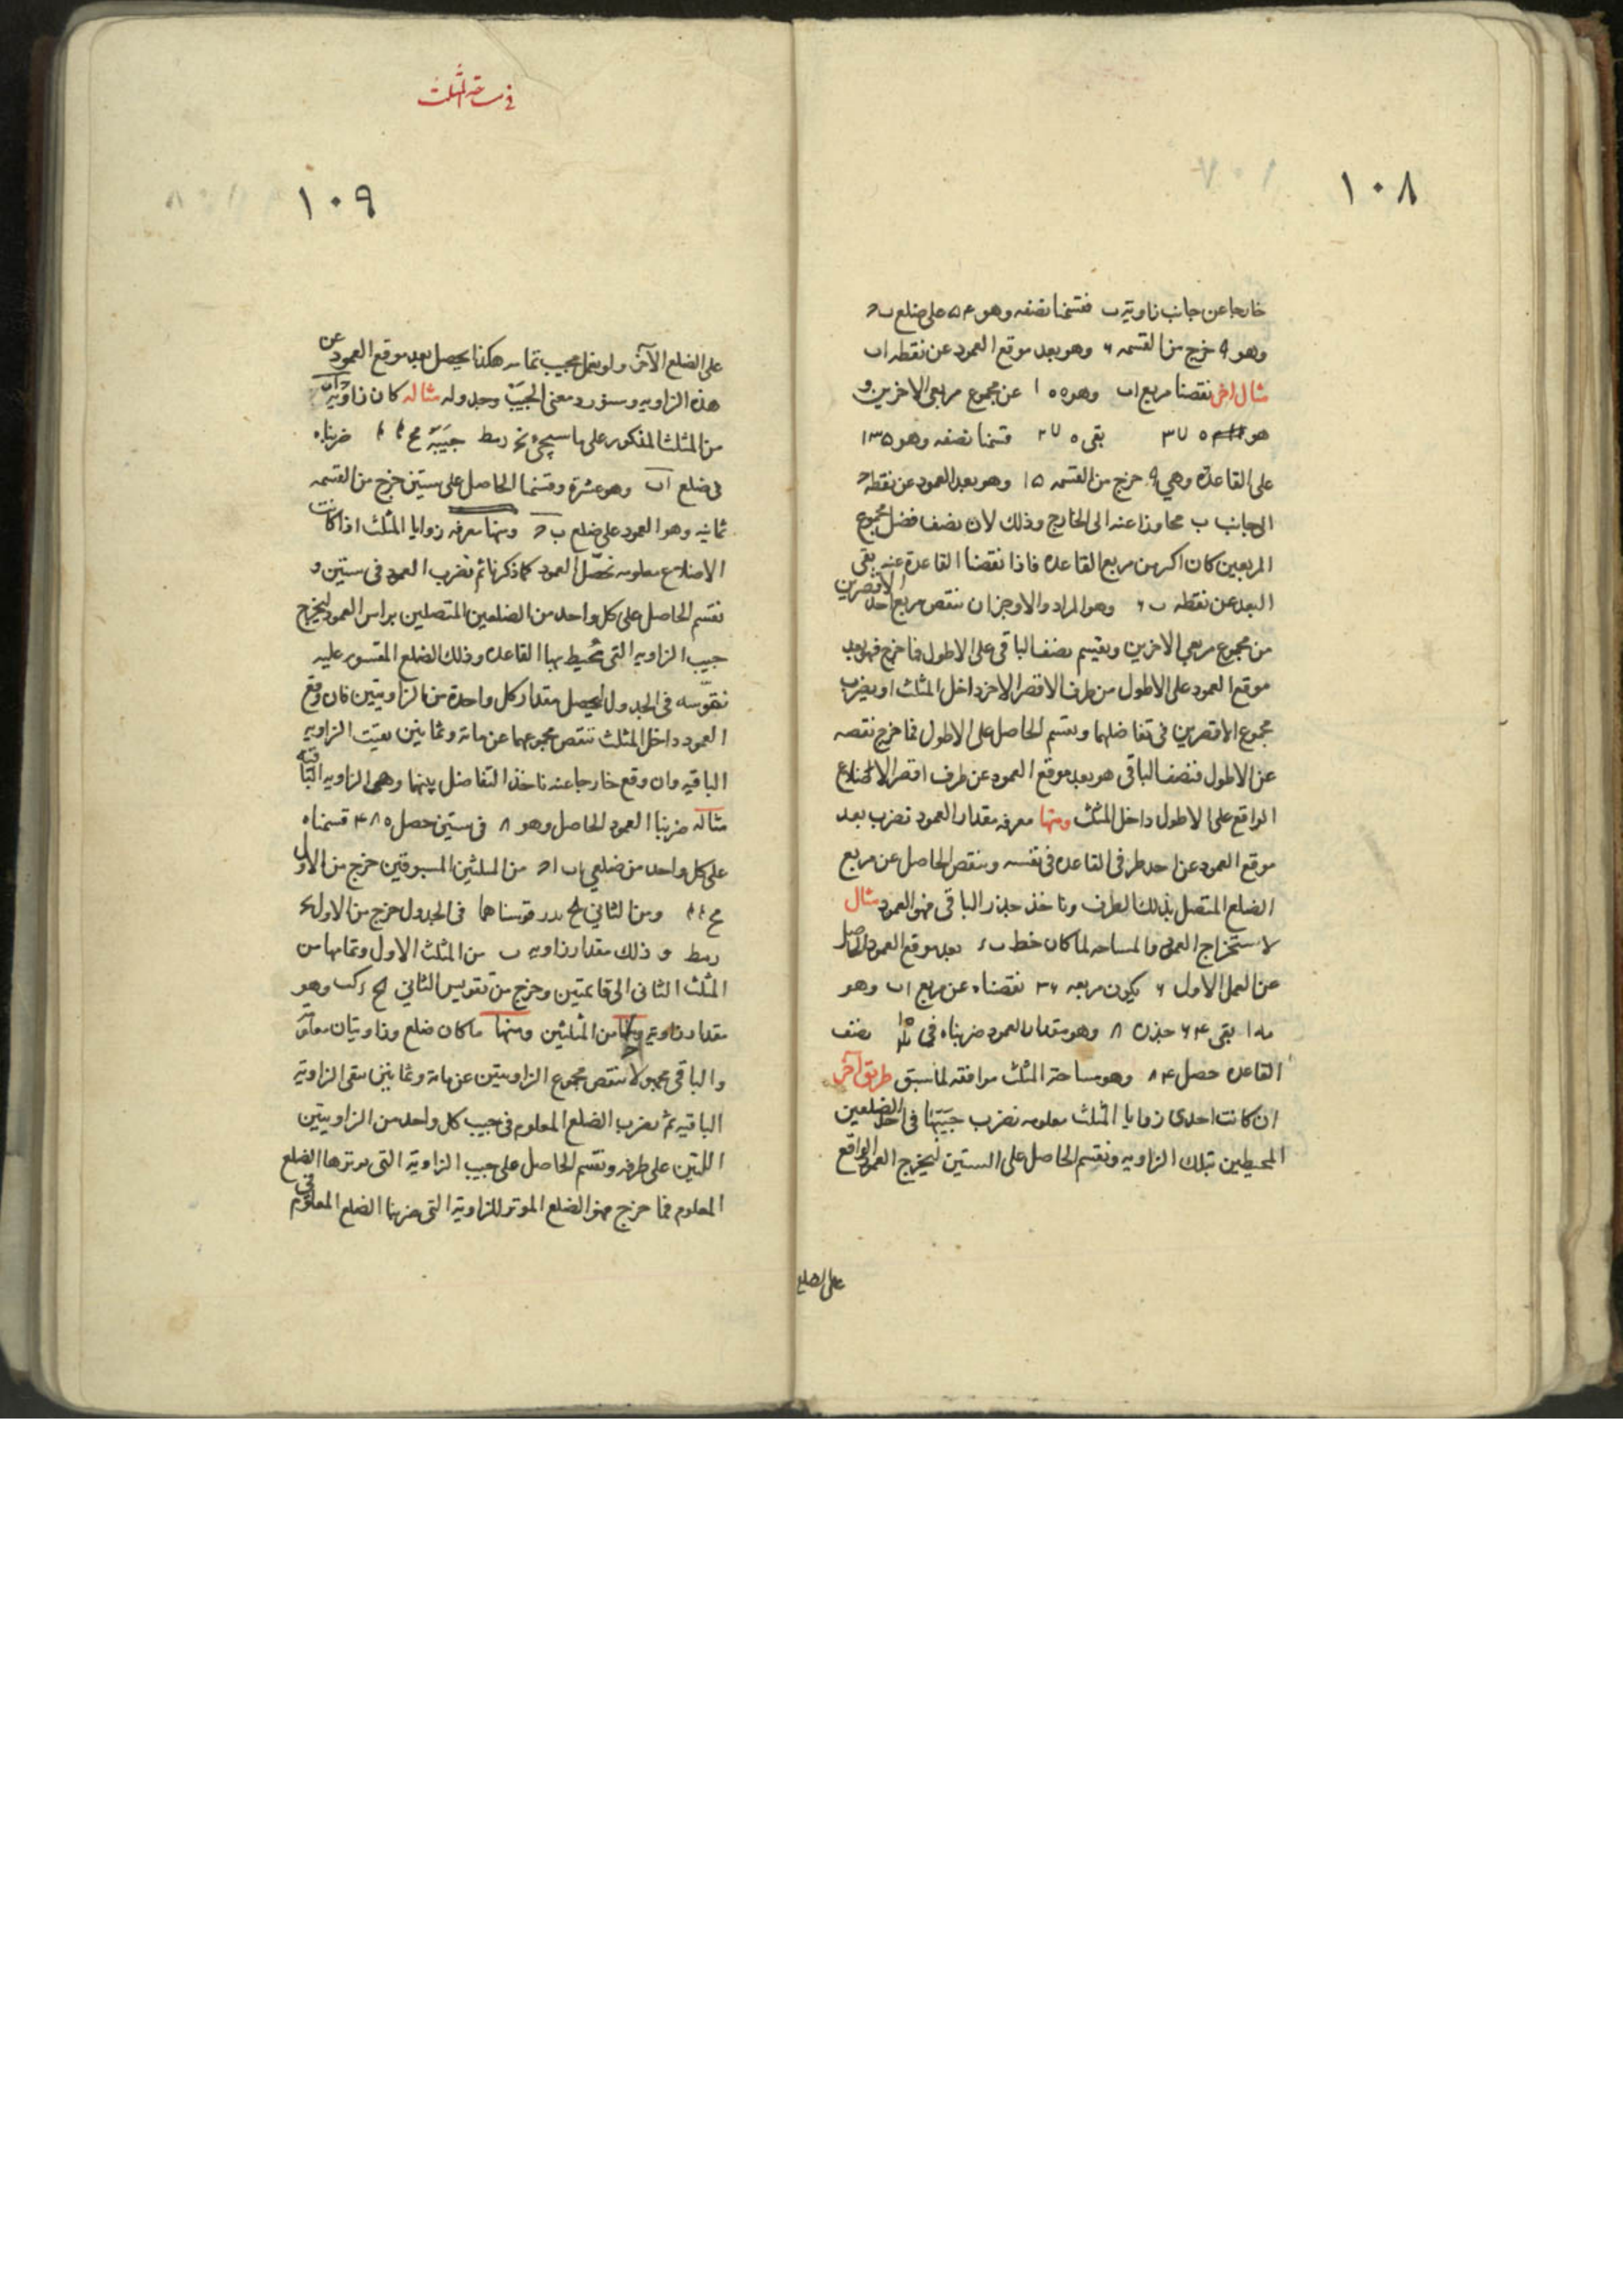 ١٠٨
خارجا عن جانب زاوية ب فقسمنا نصفه وهو ٥٤ على ضلع ب ح
وهو ٩ خرج من القسمه ٦ وهو بعد موقع العمود عن نقطه ا ب
مثال اخر نقصنا مربع ا ب وهو ١٠٠ عن مجموع مربعى الاخرين و
هو ٣٧٠ بقى ٢٧٠ قسمنا نصفه وهو ١٣٥
على القاعدة وهي ٩ خرج من القسمه ١٥ وهو بعد العمود عن نقطه ح
الى جانب ب مجاوزا عنه الى الخارج وذلك لان نصف فضل مجموع
المربعين كان اكثر من مربع القاعده فاذا نقصنا القاعدة عنه بقى
البعد عن نقطه ب ٦ وهو المراد والاوجز ان ننقص مربع احد الاقصرين
من مجموع مربعي الاخرين ونقسم نصف الباقى على الاطول فما خرج فهو بعد
موقع العمود على الاطول من طرف الاقصر الاخر داخل المثلث او نضرب
مجموع الاقصرين فى تفاضلهما ونقسم الحاصل على الاطول فما خرج نقصه
عن الاطول فنصف الباقى هو بعد موقع العمود عن طرف اقصر الاضلاع
الواقع على الاطول داخل المثلث ومنها معرفه مقدار العمود نضرب بعد
موقع العمود عن احد طرفى القاعده فى نفسه وننقص الحاصل عن مربع
الضلع المتصل بذلك الطرف وناخذ جذر الباقى فهو العمود مثال
لاستخراج العمود والمساحه لما كان خط ب ء بعد موقع العمود الحاصل
عن العمل الاول ٦ يكون مربعه ٣٦ نقصناه عن مربع ا ب وهو
١٠٠ بقى ٦٤ جذره ٨ وهو مقدار العمود ضربناه فى نصف
القاعده حصل ٨٤ وهو مساحة المثلث موافقه لما سبق طريق آخر
ان كانت احدى زوايا المثلث معلومه نضرب جيبها فى احد الضلعين
المحيطين بتلك الزاويه ونقسم الحاصل على الستين ليخرج العمود الواقع
على الضلع
فى مساحة المثلث
١٠٩
على الضلع الآخر ولو نعمل بجيب تمامه هكذا يحصل بعد موقع العمود عن
هذه الزاويه وسنورد معنى الجيب وجدوله مثاله كان زاوية
من المثلث المذكور على ما سيجئ نح ربط جيبه مح ضربناه
فى ضلع ا ب وهو عشرة وقسمنا الحاصل على ستين خرج من القسمه
ثمانيه وهو العمود على ضلع ب ح ومنها معرفه زوايا المثلث اذا كانت
الاضلاع معلومه نحصّل العمود كما ذكرنا ثم نضرب العمود فى ستين و
نقسم الحاصل على كل واحد من الضلعين المتصلين براس العمود ليخرج
جيب الزاويه التى تحيط بها القاعده وذلك الضلع المقسوم عليه
نقوّسه فى الجدول ليحصل مقدار كل واحدة من الزاويتين فان وقع
العمود داخل المثلث ننقص مجموعهما عن مائة وثمانين بقيت الزاويه
الباقيه وان وقع خارجا عنه ناخذ التفاضل بينهما وهى الزاويه الباقية
مثاله ضربنا العمود الحاصل وهو ٨ فى ستين حصل ٤٨٠ قسمناه
على كل واحد من ضلعي ا ب ا ح من المثلثين المسبوقين خرج من الاول
مح ومن الثاني قوسناهما فى الجدول خرج من الاول نح
ربط و ذلك مقدار زاويه ب من المثلث الاول وتمامها من
المثلث الثانى الى قائمتين وخرج من تقويس الثاني كح ء كب وهو
مقدار زاوية ح من المثلثين ومنها ما كان ضلع وزاويتان معلومة
والباقى مجهولا ننقص مجموع الزاويتين عن مائة وثمانين بقى الزاوية
الباقيه ثم نضرب الضلع المعلوم فى جيب كل واحد من الزاويتين
اللتين على طرفه ونقسم الحاصل على جيب الزاوية التى يوترها الضلع
المعلوم فما خرج فهو الضلع الموتر للزاوية التى ضربنا الضلع المعلوم فى